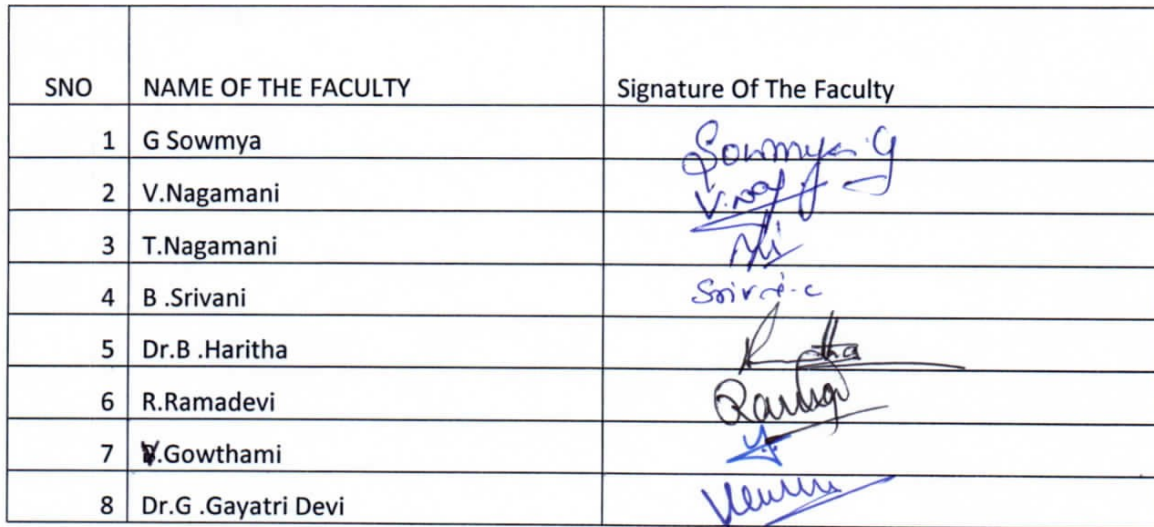 SNO NAME OF THE FACULTY Signature Of The Faculty
1 G Sowmya Sowmya.G
2 V.Nagamani V.nag
3 T.Nagamani
4 B .Srivani
5 Dr.B .Haritha
6 R.Ramadevi
7 Y.Gowthami
8 Dr.G .Gayatri Devi